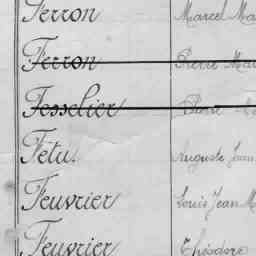 Ferron Marcel Ma
Ferron Pierre Mar
Fesselier Pierre M
Fétu. Auguste Jean
Feuvrier Louis Jean M
Feuvrier Théodore